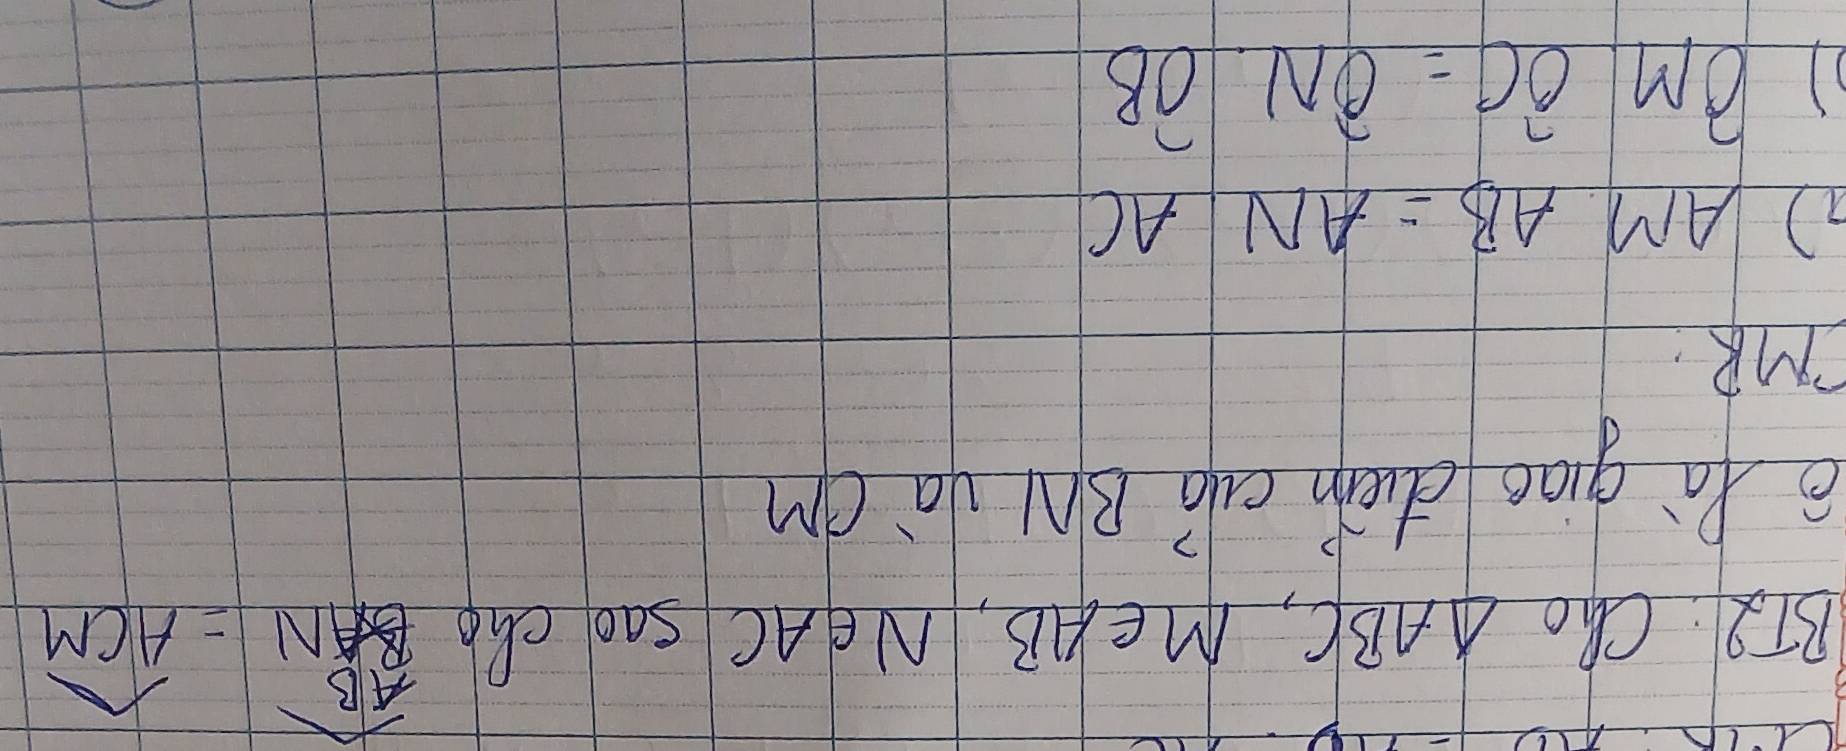 BT2. Cho ΔABC, M∈AB, N∈AC sao cho ABN = ACM
ô là giao điểm của BN và CM
CMR:
a) AM. AB = AN AC
b) ÔM ÔC = ÔN. ÔB